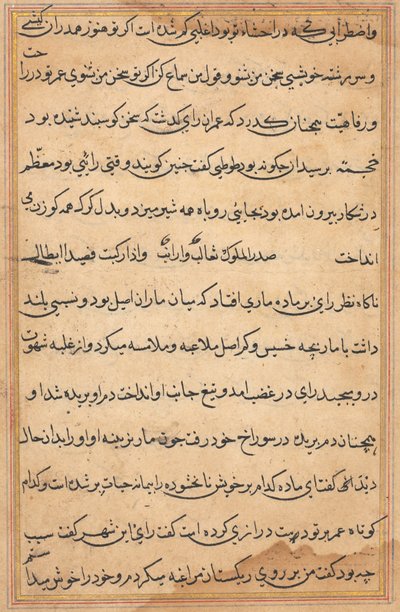 و اضطرابی که در احشاء تو بود اغلبی کم شده است اگر تو هنوز همدران کشتی
و سر رشته خویشی سخن من شنو و قول من سماع کن اگر تو سخن من شنوی عمر تو در راحت
و رفاهیت همچنان گذرد که عمر ان رای گذشت که سخن گوسپند شنیده بود
خجسته پرسید آن چگونه بود طوطی گفت چنین گویند وقتی رائی بود معظم
در شکار بیرون امده بود بجائی روباه همه شیر میزد و بدل گرگ همه گوزن می
انداخت صدر الملوک ثعالب وارانب واذا رکبت فصدا ابطال
ناگاه نظر رای بر ماده ماری افتاد که میان ماران اصیل بود و نسبی بلند
داشت با مار بچه خسیس و کم اصل ملاعبه و ملامسه میکرد و از غلبه شهوت
درو می پیچید رای در غضب امد و تیغ جانب او انداخت دم او بریده شد او
همچنان دم بریده در سوراخ خود رفت چون مار نرینه او او را بدان حال
دید گفت ای ماده کدام بر خویش نابخشوده را پیمانه حیات پر شده است و کدام
کوتاه عمر بر تو دست درازی کرده است گفت رای این شهر گفت سبب
چه بود گفت من بر روی ریگستان مراغه میکردم و خود را خوش میدا
شتم